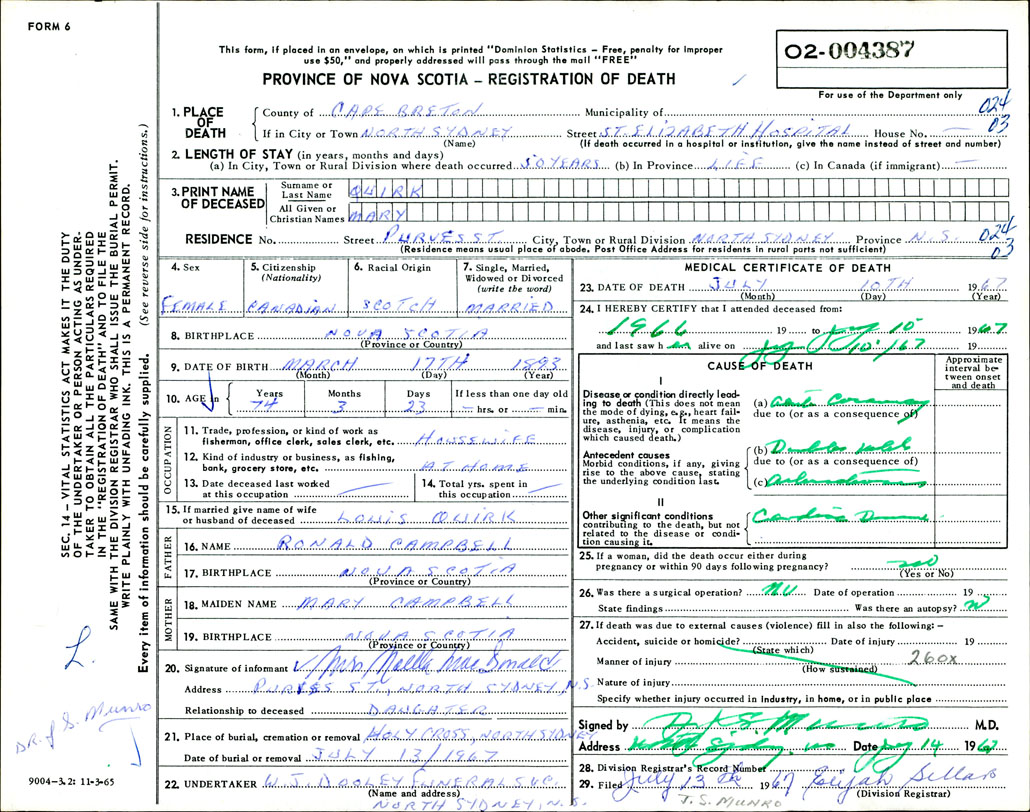 FORM 6
This form, if placed in an envelope, on which is printed "Dominion Statistics – Free, penalty for improper
use $50," and properly addressed will pass through the mail "FREE"
PROVINCE OF NOVA SCOTIA – REGISTRATION OF DEATH
02-004387
For use of the Department only
024
03
1. PLACE OF DEATH
County of CAPE BRETON Municipality of
If in City or Town NORTH SYDNEY Street ST. ELIZABETH HOSPITAL House No. —
(Name) (If death occurred in a hospital or institution, give the name instead of street and number)
2. LENGTH OF STAY (in years, months and days)
(a) In City, Town or Rural Division where death occurred 50 YEARS (b) In Province LIFE (c) In Canada (if immigrant) —
3. PRINT NAME OF DECEASED
Surname or Last Name QUIRK
All Given or Christian Names MARY
RESIDENCE No. Street PURVES ST City, Town or Rural Division NORTH SYDNEY Province N.S.
(Residence means usual place of abode. Post Office Address for residents in rural parts not sufficient)
024
03
4. Sex 5. Citizenship (Nationality) 6. Racial Origin 7. Single, Married, Widowed or Divorced (write the word)
FEMALE CANADIAN SCOTCH MARRIED
8. BIRTHPLACE NOVA SCOTIA
(Province or Country)
9. DATE OF BIRTH MARCH 17TH 1893
(Month) (Day) (Year)
10. AGE in Years Months Days If less than one day old
74 3 23 — hrs. or — min.
OCCUPATION
11. Trade, profession, or kind of work as
fisherman, office clerk, sales clerk, etc. HOUSEWIFE
12. Kind of industry or business, as fishing,
bank, grocery store, etc. AT HOME
13. Date deceased last worked at this occupation —
14. Total yrs. spent in this occupation —
15. If married give name of wife
or husband of deceased LOUIS QUIRK
FATHER
16. NAME RONALD CAMPBELL
17. BIRTHPLACE NOVA SCOTIA
(Province or Country)
MOTHER
18. MAIDEN NAME MARY CAMPBELL
19. BIRTHPLACE NOVA SCOTIA
(Province or Country)
20. Signature of informant Mrs. MacDonald
Address PURVES ST., NORTH SYDNEY, N.S.
Relationship to deceased DAUGHTER
21. Place of burial, cremation or removal HOLY CROSS, NORTH SYDNEY
Date of burial or removal JULY 13/1967
22. UNDERTAKER W. J. DOOLEY FUNERAL SVC.
(Name and address)
NORTH SYDNEY, N.S.
MEDICAL CERTIFICATE OF DEATH
23. DATE OF DEATH JULY 10TH 1967
(Month) (Day) (Year)
24. I HEREBY CERTIFY that I attended deceased from:
1966 19 to July 10 1967
and last saw her alive on July 10/67 19
CAUSE OF DEATH
Approximate interval between onset and death
I
Disease or condition directly leading
to death (This does not mean
the mode of dying, e.g., heart failure,
asthenia, etc. It means the
disease, injury, or complication
which caused death.)
(a) Acute Coronary
due to (or as a consequence of)
Antecedent causes
Morbid conditions, if any, giving
rise to the above cause, stating
the underlying condition last.
(b) Diabetes
due to (or as a consequence of)
(c)
II
Other significant conditions
contributing to the death, but not
related to the disease or condition
causing it.
25. If a woman, did the death occur either during
pregnancy or within 90 days following pregnancy? no
(Yes or No)
26. Was there a surgical operation? No Date of operation 19
State findings Was there an autopsy? no
27. If death was due to external causes (violence) fill in also the following: –
Accident, suicide or homicide? Date of injury 19
(State which)
Manner of injury 260X
(How sustained)
Nature of injury
Specify whether injury occurred in Industry, in home, or in public place
Signed by Munro M.D.
Address North Sydney, NS Date July 14 1967
28. Division Registrar's Record Number
29. Filed July 13th 1967 Elijah Sellars
(Division Registrar)
J. S. MUNRO
SEC. 14 – VITAL STATISTICS ACT MAKES IT THE DUTY
OF THE UNDERTAKER OR PERSON ACTING AS UNDER-
TAKER TO OBTAIN ALL THE PARTICULARS REQUIRED
IN THE "REGISTRATION OF DEATH" AND TO FILE THE
SAME WITH THE DIVISION REGISTRAR WHO SHALL ISSUE THE BURIAL PERMIT.
WRITE PLAINLY WITH UNFADING INK. THIS IS A PERMANENT RECORD.
Every item of information should be carefully supplied. (See reverse side for instructions.)
L.
DR. J S. Munro
9004-3.2: 11-3-65